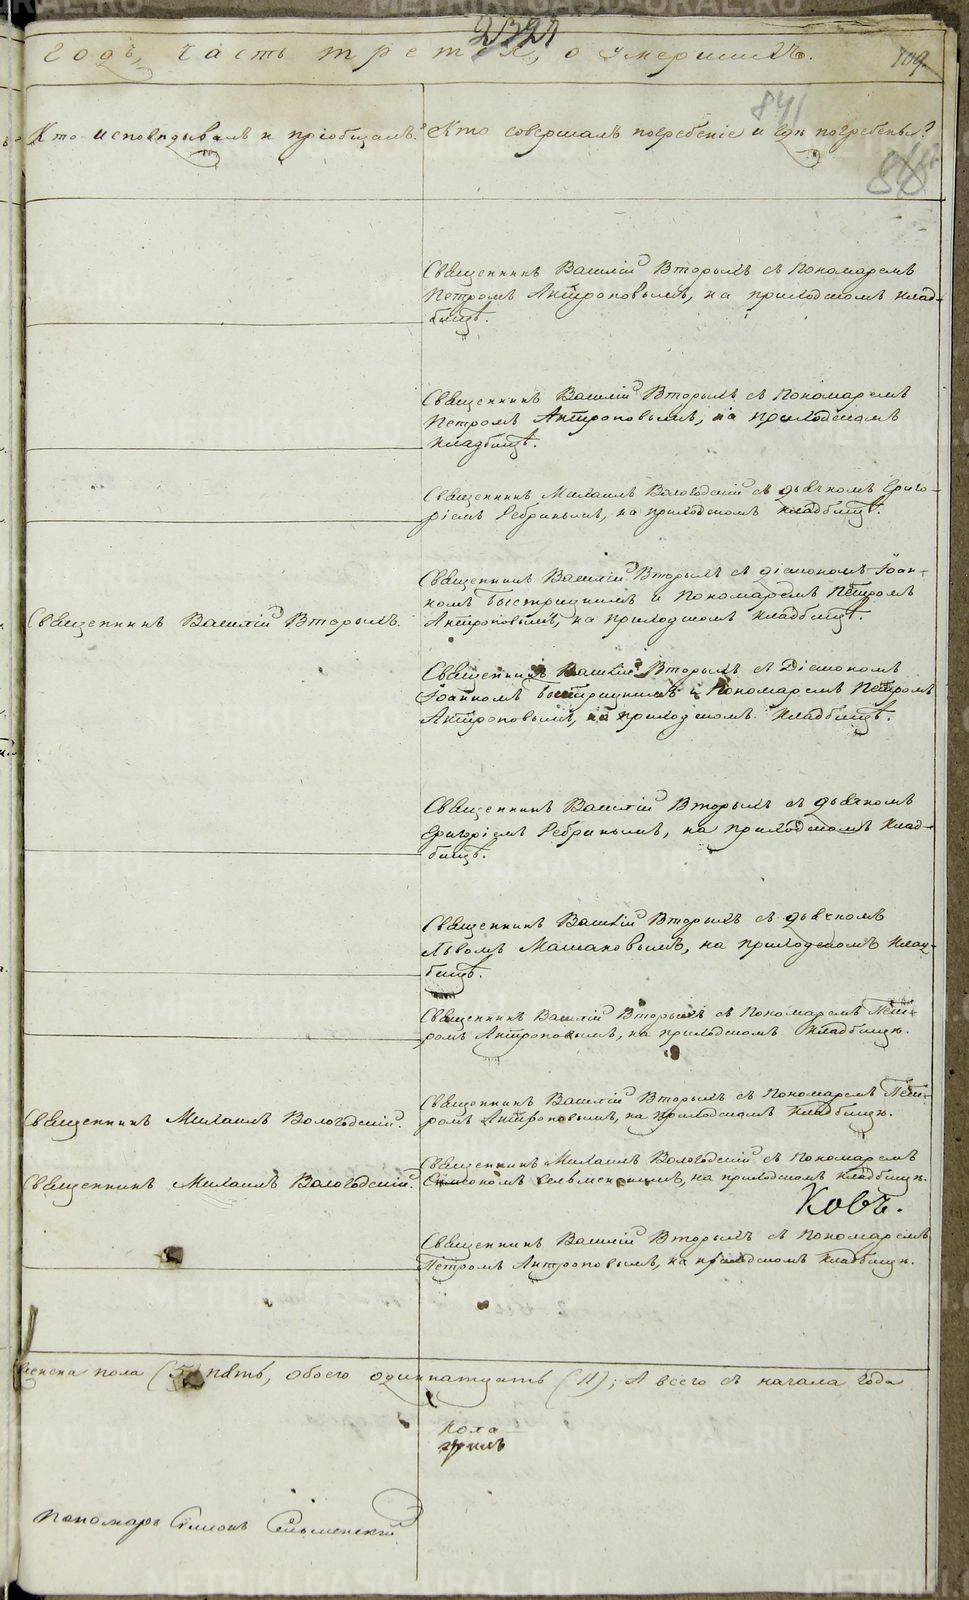 годъ, часть третья, о умершихъ.
109.
841
Кто исповѣдывалъ и пріобщалъ?
Кто совершалъ погребеніе и гдѣ погребены?
Священникъ Василій Вторыхъ съ Пономаремъ
Петромъ Антроповымъ, на приходскомъ клад-
бищѣ.
Священникъ Василій Вторыхъ съ Пономаремъ
Петромъ Антроповымъ, на приходскомъ
кладбищѣ.
Священникъ Михаилъ Вологодскій съ дьячкомъ Григо-
ріемъ Ребринымъ, на приходскомъ кладбищѣ.
Священникъ Василій Вторыхъ.
Священникъ Василій Вторыхъ съ діакономъ Іоан-
номъ Быстрицкимъ и Пономаремъ Петромъ
Антроповымъ, на приходскомъ кладбищѣ.
Священникъ Василій Вторыхъ съ Діакономъ
Іоанномъ Быстрицкимъ и Пономаремъ Петромъ
Антроповымъ, на приходскомъ кладбищѣ.
Священникъ Василій Вторыхъ съ дьячкомъ
Григоріемъ Ребринымъ, на приходскомъ клад-
бищѣ.
Священникъ Василій Вторыхъ съ дьячкомъ
Львомъ на приходскомъ клад-
бищѣ.
Священникъ Василій Вторыхъ съ Пономаремъ Пет-
ромъ Антроповымъ, на приходскомъ кладбищѣ.
Священникъ Михаилъ Вологодскій.
Священникъ Василій Вторыхъ съ Пономаремъ Пет-
ромъ Антроповымъ, на приходскомъ кладбищѣ.
Священникъ Михаилъ Вологодскій.
Священникъ Михаилъ Вологодскій съ Пономаремъ
на приходскомъ кладбищѣ.
Ковъ.
Священникъ Василій Вторыхъ съ Пономаремъ
Петромъ Антроповымъ, на приходскомъ кладбищѣ.
женска пола (5) пять, обоего одиннатцать (11); А всего съ начала года
пола
Пономарь Симеонъ Сельменскій
METRIKI.GASO-URAL.RU